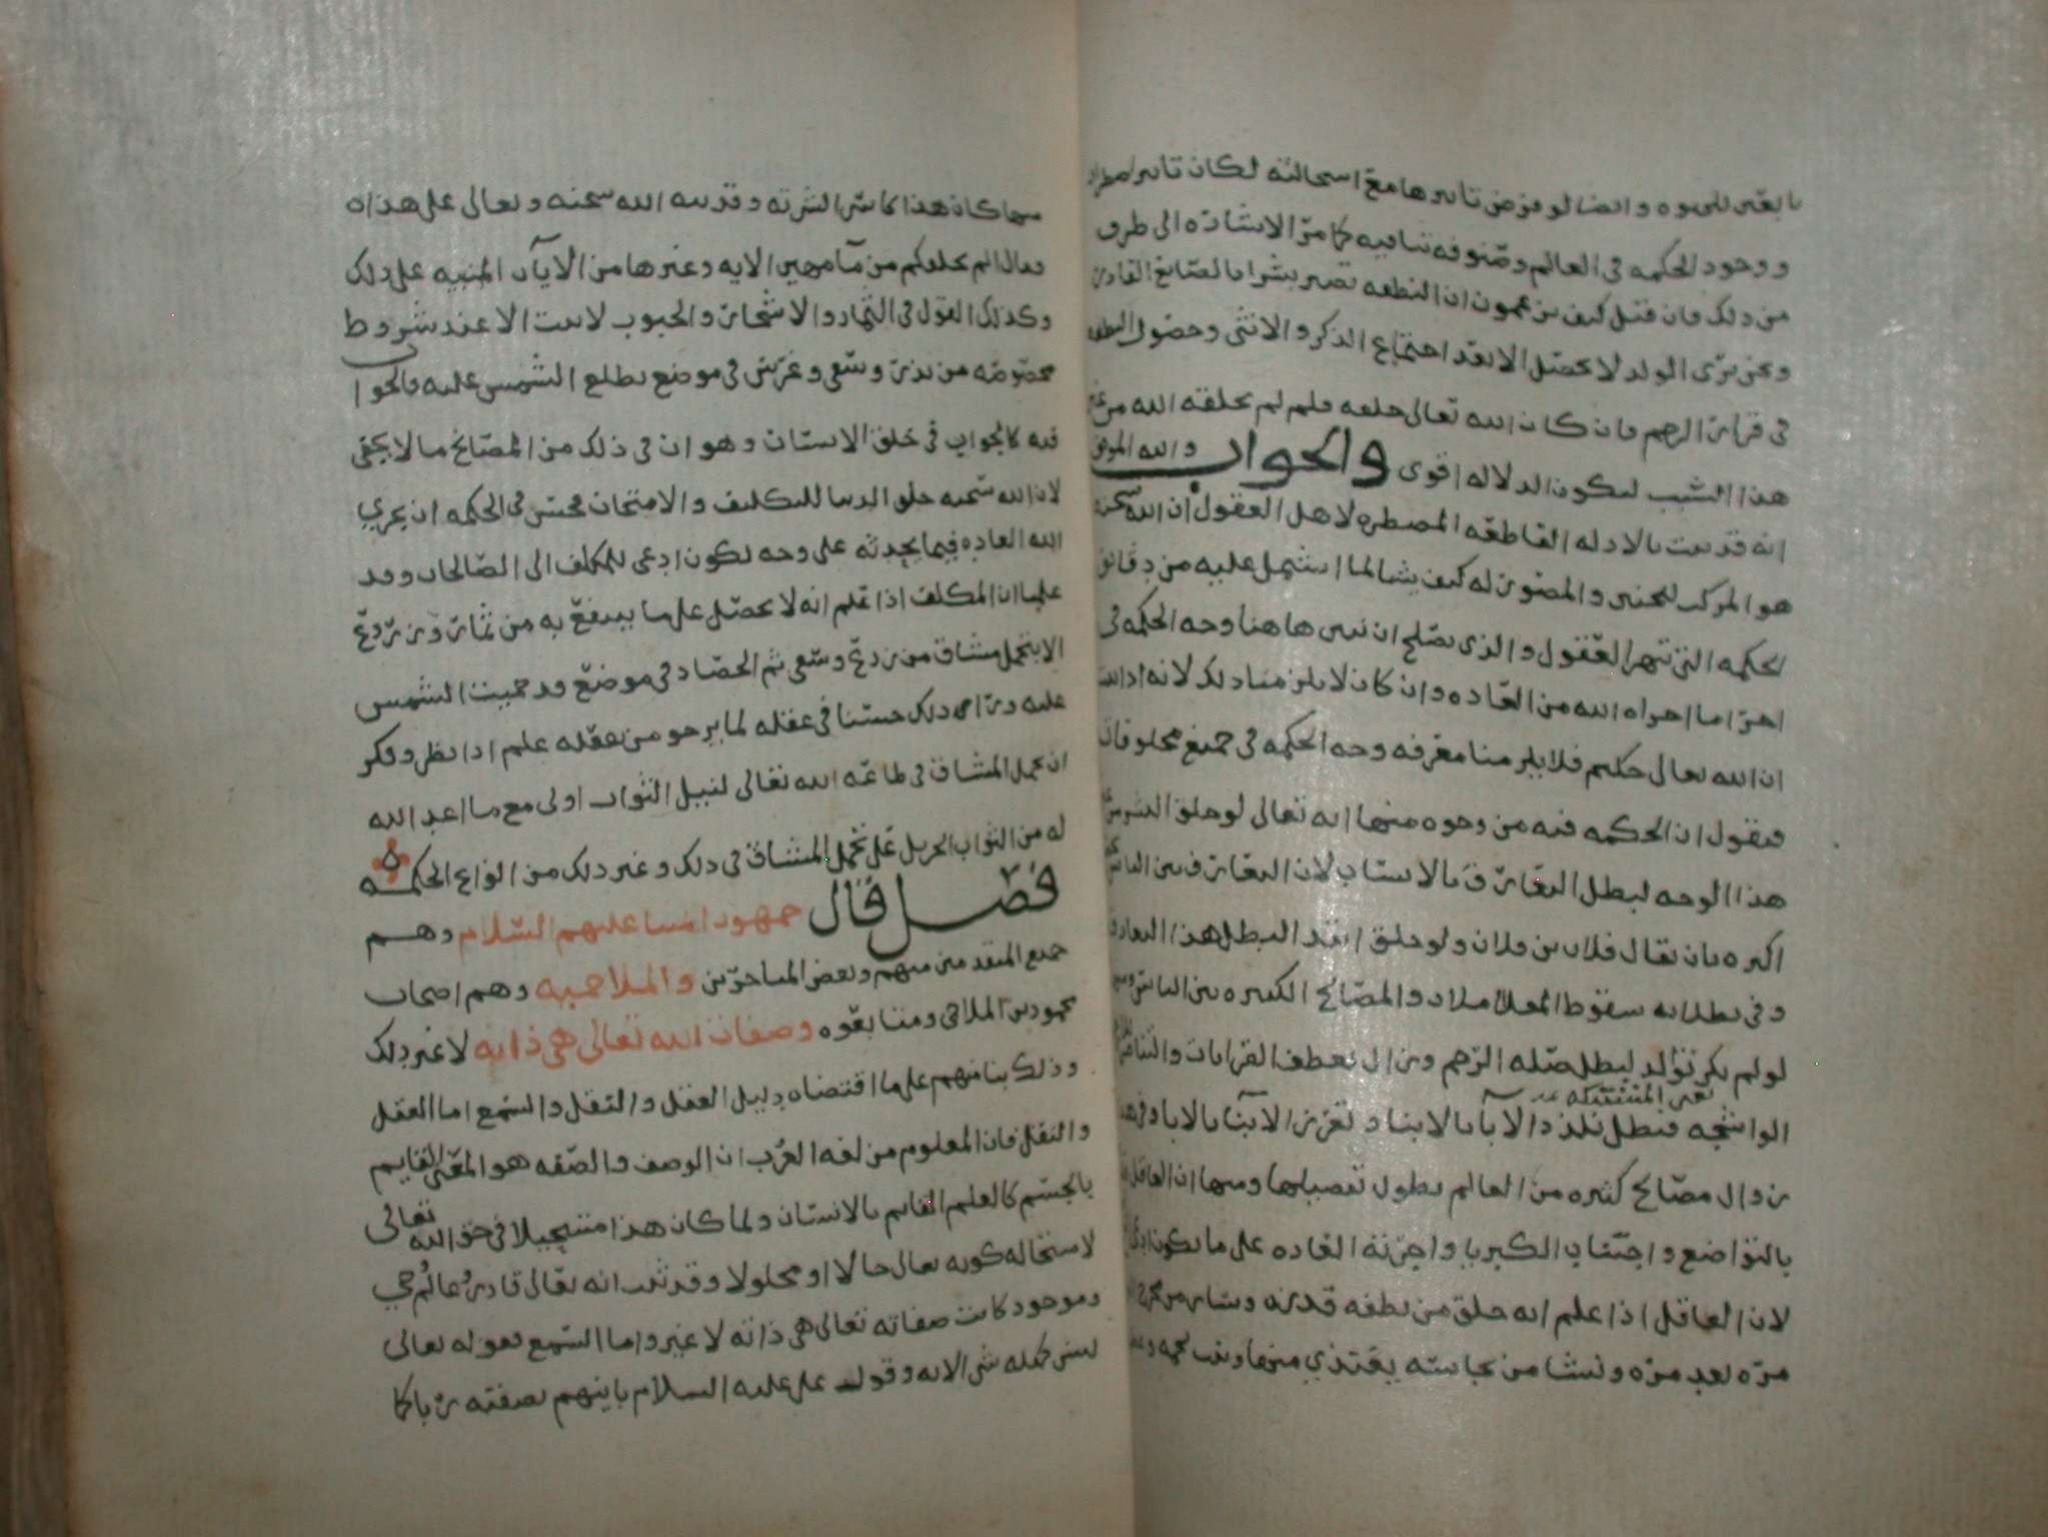 وايضا لو فرض تاثيرها مع استحالته لكان تاثير اضطرار
ووجود الحكمه في العالم وصنوفه تنافيه كما مر الاشاره الى طرف
من ذلك فان قيل كيف تزعمون ان النطفه تصير بشرا بالصانع القادر
ونحن نرى الولد لا يحصل الا بعد اجتماع الذكر والانثى وحصول النطفه
في قرار الرحم فان كان الله تعالى خلقه فلم لم يخلقه الله من غير
هذا السبب ليكون الدلاله اقوى والجواب والله الموفق
انه قد ثبت بالادله القاطعه المضطره لاهل العقول ان الله سبحنه
هو المركب للجنين والمصور له كيف يشا لما اشتمل عليه من دقائق
الحكمه التي تبهر العقول والذي يصلح ان نبين هاهنا وجه الحكمه في
اجرا ما اجراه الله من العاده وان كان لا يلزمنا ذلك لانه اذا ثبت
ان الله تعالى حكيم فلا يلزمنا معرفه وجه الحكمه في جميع مخلوقاته
فنقول ان الحكمه فيه من وجوه منها انه تعالى لو خلق البشر من غير
هذا الوجه لبطل التعارف بالانساب لان التعارف بين الناس
اكثره بان يقال فلان بن فلان ولو خلق ابتدا لبطل هذا التعارف
وفي بطلانه سقوط المعاملات والمصالح الكثيره بين الناس ومنها
لو لم يكن توالد لبطل صله الرحم وزال تعطف القرابات والتناصر
يعني المشتبكه
الواشجه فبطل تلذذ الابا بالابنا وتعزز الابنا بالابا وفي هذا
زوال مصالح كثيره من العالم يطول تفصيلها ومنها ان العاقل
بالتواضع واجتناب الكبريا واجرته العاده على ما يكون ادعى
لان العاقل اذا علم انه خلق من نطفه قذره
مره بعد مره ونشا من نجاسته يغتذي منها ونبت لحمه
منها كان هذا كاسرا لشرته وقد نبه الله سبحنه وتعالى على هذا
فقال الم نخلقكم من ما مهين الايه وغيرها من الايات المنبيه على ذلك
وكذلك القول في الثمار والاشجار والحبوب لا ينبت الا عند شروط
مخصوصه من بذر وسقي وغرس في موضع يطلع الشمس عليه فالجواب
فيه كالجواب في خلق الانسان وهو ان في ذلك من المصالح ما لا يخفى
لان الله سبحنه خلق الدنيا للتكليف والامتحان فحسن في الحكمه ان يجري
الله العاده فيما يحدثه على وجه يكون ادعى للمكلف الى الصالحات وقد
علمنا ان المكلف اذا علم انه لا يحصل على ما ينتفع به من ثمار وزرع
الا بتحمل مشاق من زرع وسقي ثم الحصاد في موضع قد حميت الشمس
عليه وراى ذلك حسنا في عقله لما يرجو من عقله علم اذا نظر وفكر
ان تحمل المشاق في طاعه الله تعالى لنيل الثواب اولى مع ما اعد الله
له من الثواب الجزيل على تحمل المشاق في ذلك وغير ذلك من انواع الحكمه
فصل قال جمهور ائمتنا عليهم السلام وهم
جميع المتقدمين منهم وبعض المتاخرين والملاحميه وهم اصحاب
محمود بن الملاحمي ومتابعوه وصفات الله تعالى هي ذاته لا غير ذلك
وذلك بنا منهم على ما اقتضاه دليل العقل والنقل والسمع اما العقل
والنقل فان المعلوم من لغه العرب ان الوصف والصفه هو المعنى القايم
بالجسم كالعلم القايم بالانسان ولما كان هذا مستحيلا في حق الله تعالى
لاستحاله كونه تعالى حالا او محلولا وقد ثبت انه تعالى قادر وعالم وحي
وموجود كانت صفاته تعالى هي ذاته لا غير واما السمع فقوله تعالى
ليس كمثله شي الايه وقول علي عليه السلام باينهم بصفته ربا كما